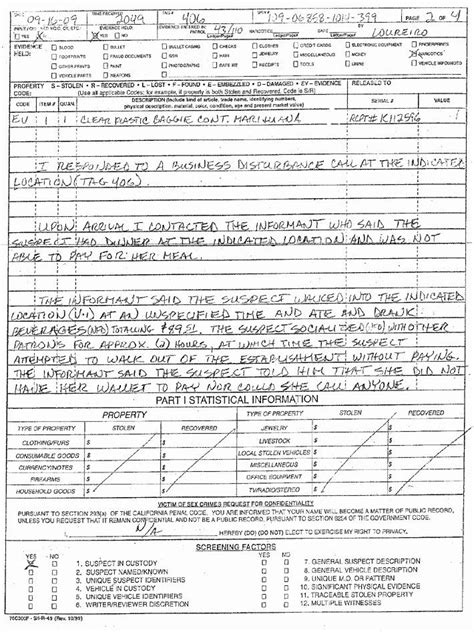 09-16-09 2049 406 43/110 109-06858-1014-399 PAGE 2 of 4
LOUREIRO
EVIDENCE HELD:
BLOOD BULLET CASING CHECKS CLOTHING CREDIT CARDS ELECTRONIC EQUIPMENT FINGERPRINTS
PAINT BUCCAL SWAB FIREARMS GLASS JEWELRY KNIFE NARCOTICS
OTHER PHOTOS
VEHICLE PARTS WEAPONS
PROPERTY S - STOLEN R - RECOVERED L - LOST F - FOUND E - EMBEZZLED D - DAMAGED EV - EVIDENCE RELEASED TO
CODE ITEM # QUAN. DESCRIPTION (Include kind of article, trade name, identifying numbers, physical description, material, color, condition, age and present market value) SERIAL # VALUE
EV 1 1 CLEAR PLASTIC BAGGIE CONT. MARIJUANA RCPT# K112596
I RESPONDED TO A BUSINESS DISTURBANCE CALL AT THE INDICATED
LOCATION (TAG 406).
UPON ARRIVAL I CONTACTED THE INFORMANT WHO SAID THE
SUSPECT HAD DINNER AT THE INDICATED LOCATION AND WAS NOT
ABLE TO PAY FOR HER MEAL.
THE INFORMANT SAID THE SUSPECT WALKED INTO THE INDICATED
LOCATION (V-1) AT AN UNSPECIFIED TIME AND ATE AND DRANK
BEVERAGES (NFD) TOTALING $89.51. THE SUSPECT SOCIALIZED WITH OTHER
PATRONS FOR APPROX. (2) HOURS, AT WHICH TIME THE SUSPECT
ATTEMPTED TO WALK OUT OF THE ESTABLISHMENT WITHOUT PAYING.
THE INFORMANT SAID THE SUSPECT TOLD HIM THAT SHE DID NOT
HAVE HER WALLET TO PAY NOR COULD SHE CALL ANYONE.
PART I STATISTICAL INFORMATION
PROPERTY TYPE OF PROPERTY STOLEN RECOVERED
TYPE OF PROPERTY STOLEN RECOVERED JEWELRY $ $
CLOTHING/FURS $ $ LIVESTOCK $ $
CONSUMABLE GOODS $ $ LOCAL STOLEN VEHICLES $ $
CURRENCY/NOTES $ $ MISCELLANEOUS $ $
FIREARMS $ $ OFFICE EQUIPMENT $ $
HOUSEHOLD GOODS $ $ TV/RADIO/STEREO $ $
VICTIM OF SEX CRIMES REQUEST FOR CONFIDENTIALITY
PURSUANT TO SECTION 293(a) OF THE CALIFORNIA PENAL CODE, YOU ARE INFORMED THAT YOUR NAME WILL BECOME A MATTER OF PUBLIC RECORD,
UNLESS YOU REQUEST THAT IT REMAIN CONFIDENTIAL AND NOT BE A PUBLIC RECORD, PURSUANT TO SECTION 6254 OF THE GOVERNMENT CODE.
I, N/A HEREBY (DO) (DO NOT) ELECT TO EXERCISE MY RIGHT TO PRIVACY.
SCREENING FACTORS
YES NO YES NO
1. SUSPECT IN CUSTODY 7. GENERAL SUSPECT DESCRIPTION
2. SUSPECT NAMED/KNOWN 8. GENERAL VEHICLE DESCRIPTION
3. UNIQUE SUSPECT IDENTIFIERS 9. UNIQUE M.O. OR PATTERN
4. VEHICLE IN CUSTODY 10. SIGNIFICANT PHYSICAL EVIDENCE
5. UNIQUE VEHICLE IDENTIFIERS 11. TRACEABLE STOLEN PROPERTY
6. WRITER/REVIEWER DISCRETION 12. MULTIPLE WITNESSES